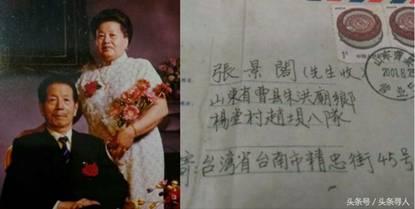 張景閣(先生收)
山東省曹县朱洪廟鄉
楊堂村趙垻八隊
寄:台湾省台南市精忠街45号
头条号/头条寻人